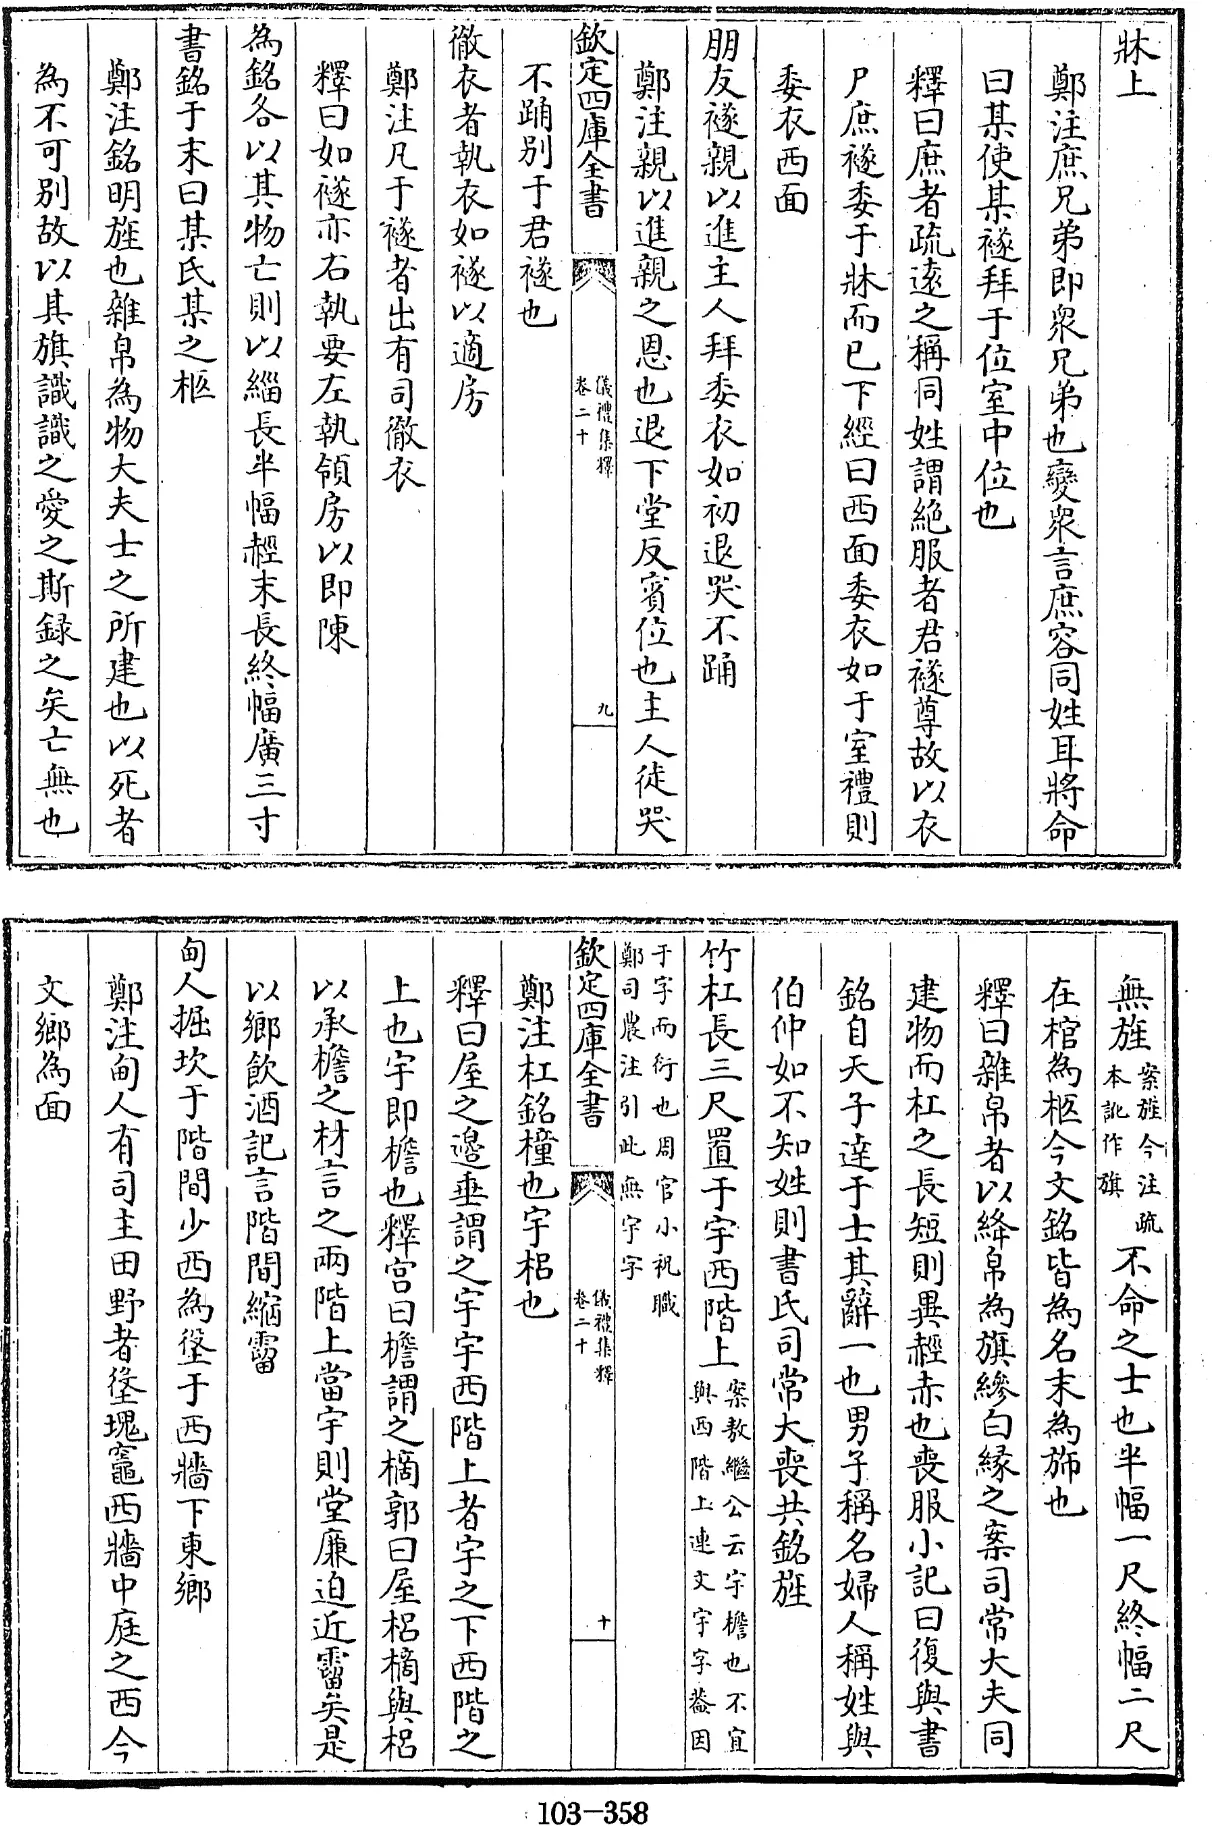 牀上
鄭注庶兄弟即衆兄弟也變衆言庶容同姓耳將命
曰某使某襚拜于位室中位也
釋曰庶者疏遠之稱同姓謂絶服者君襚尊故以衣
尸庶襚委于牀而已下經曰西面委衣如于室禮則
委衣西面
朋友襚親以進主人拜委衣如初退哭不踊
鄭注親以進親之恩也退下堂反賓位也主人徒哭
欽定四庫全書
儀禮集釋
卷二十
九
不踊别于君襚也
徹衣者執衣如襚以適房
鄭注凡于襚者出有司徹衣
釋曰如襚亦右執要左執領房以即陳
為銘各以其物亡則以緇長半幅赬末長終幅廣三寸
書銘于末曰某氏某之柩
鄭注銘明旌也雜帛為物大夫士之所建也以死者
為不可别故以其旗識識之愛之斯録之矣亡無也
無旌案旌今注疏本訛作旗不命之士也半幅一尺終幅二尺
在棺為柩今文銘皆為名末為斾也
釋曰雜帛者以絳帛為旗縿白縁之案司常大夫同
建物而杠之長短則異赬赤也喪服小記曰復與書
銘自天子達于士其辭一也男子稱名婦人稱姓與
伯仲如不知姓則書氏司常大喪共銘旌
竹杠長三尺置于宇西階上案敖繼公云宇檐也不宜與西階上連文宇字葢因
于字而衍也周官小祝職
鄭司農注引此無宇字
欽定四庫全書
儀禮集釋
卷二十
十
鄭注杠銘橦也宇梠也
釋曰屋之邊垂謂之宇宇西階上者宇之下西階之
上也宇即檐也釋宫曰檐謂之樀郭曰屋梠樀與梠
以承檐之材言之兩階上當宇則堂廉迫近霤矣是
以鄉飲酒記言階間縮霤
甸人掘坎于階間少西為垼于西牆下東鄉
鄭注甸人有司主田野者垼塊竈西牆中庭之西今
文鄉為面
103-358